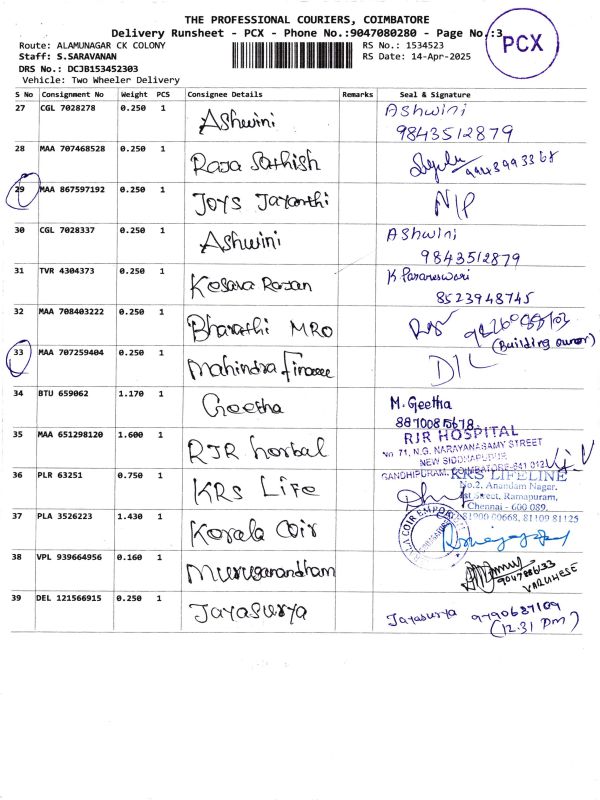 THE PROFESSIONAL COURIERS, COIMBATORE
Delivery Runsheet - PCX - Phone No.:9047080280 - Page No.:3
PCX
Route: ALAMUNAGAR CK COLONY
RS No.: 1534523
Staff: S.SARAVANAN
RS Date: 14-Apr-2025
DRS No.: DCJB153452303
Vehicle: Two Wheeler Delivery
S No Consignment No Weight PCS Consignee Details Remarks Seal & Signature
27 CGL 7028278 0.250 1 Ashwini Ashwini
9843512879
28 MAA 707468528 0.250 1 Raja Sathish
29 MAA 867597192 0.250 1 Joys Jayanthi N/P
30 CGL 7028337 0.250 1 Ashwini Ashwini
9843512879
31 TVR 4304373 0.250 1 Kesava Rajan K Parareswari
8523948745
32 MAA 708403222 0.250 1 Bharathi MRO
(Building owner)
33 MAA 707259404 0.250 1 Mahindra Finance D/L
34 BTU 659062 1.170 1 Geetha M. Geetha
35 MAA 651298120 1.600 1 RJR herbal RJR HOSPITAL
No 71, N.G. NARAYANASAMY STREET
NEW SIDDHAPUDUR
GANDHIPURAM, COIMBATORE-641 012
36 PLR 63251 0.750 1 KRS Life KRS LIFELINE
No.2, Anandam Nagar,
1st Street, Ramapuram,
Chennai - 600 089.
37 PLA 3526223 1.430 1 Kerala Coir 81900 00668, 81109 81125
38 VPL 939664956 0.160 1 Muruganandham
VARUHESE
39 DEL 121566915 0.250 1 Jayasurya Jayasurya 9790687109
(12.31 Pm)